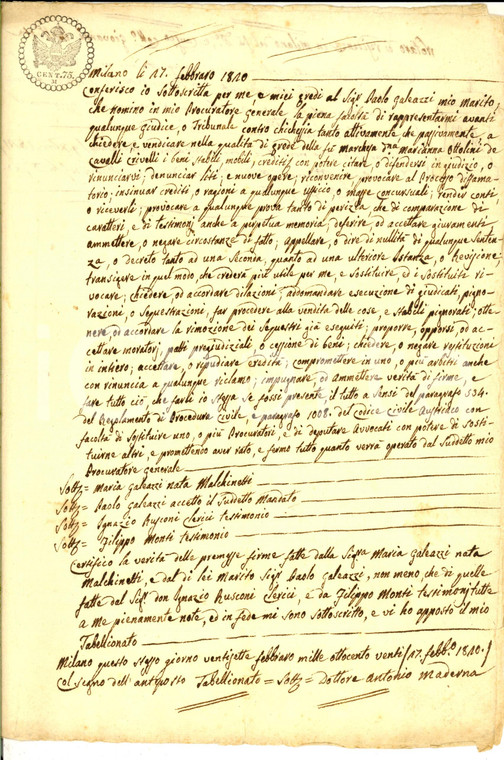 CENT. 75.
Milano li 27. febbraro 1820
Conferisco io Sottoscritta per me, e miei Eredi al Sigr Paolo Galeazzi mio Marito,
che nomino in mio Procuratore generale la piena facoltà di rappresentarmi avanti
qualunque Giudice, o Tribunale contro chichesia tanto attivamente che passivamente, a
chiedere, e vendicare nella qualità di Erede della fu Marchesa Dna Marianna Ottolini de
Cavelli Crivelli i beni stabili, mobili, creditj con potere citare, o difendersi in giudizio, o
rinunciarvi; denunciar liti, e nuove opere; riconvenire, provocare al Processo diffama-
torio; insinuar crediti, o ragioni a qualunque ufficio, o masse concursuali; render conti,
o riceverli; provocare a qualunque prova tanto di perizia che di comparazione de'
caratteri, e di testimonj anche a perpetua memoria, deferire, od accettare giuramenti
ammettere, o negare circostanze di fatto; Appellare, o dire di nullità di qualunque Senten-
za, o decreto tanto ad una Seconda, quanto ad una ulteriore Istanza, o Revisione;
transigere in quel modo, che crederà più utile per me, e Sostituire, ed i Sostituiti ri-
vocare; chiedere, od accordare dilazioni; addomandare esecuzione di giudicati, pigno-
razioni, o Sequestrazioni, far procedere alla vendita delle cose, e Stabili pignorati; otte-
nere, od accordare la rimozione dei Sequestri già eseguiti; proporre, opporsi, od ac-
cettare moratorj, patti pregiudiziali, o cessione di beni; chiedere, o negare restituzioni
in intiero; accettare, o ripudiare eredità; compromettere in uno, o più arbitri anche
con rinuncia a qualunque riclamo; impugnare, od ammettere verità di firme, e
fare tutto ciò, che farei io stessa se fossi presente, il tutto a Sensi del paragrafo 534.
del Regolamento di Procedura Civile, e paragrafo 1008. del Codice Civile Austriaco con
facoltà di Sostituire uno, o più Procuratori, e di deputare Avvocati con potere di Sosti-
tuirne altri, e promettendo aver rato, e fermo tutto quanto verrà operato dal Suddetto mio
Procuratore generale
Sottz = Maria Galeazzi nata Malchinetti
Sottz = Paolo Galeazzi accetto il Suddetto Mandato
Sottz = Ignazio Rusconi Clerici testimonio
Sottz = Filippo Monti testimonio
Certifico la verità delle premesse firme fatte dalla Signa Maria Galeazzi nata
Malchinetti, e dal di lei Marito Sigr Paolo Galeazzi, non meno, che di quelle
fatte dal Sigr Don Ignazio Rusconi Clerici, e da Filippo Monti testimonj tutte
a me pienamente note, ed in fede mi sono sottoscritto, e vi ho apposto il mio
Tabellionato
Milano questo stesso giorno ventisette febbraro mille ottocento venti (27. febb.o 1820.)
Col segno dell'antiposto Tabellionato = Sottz = Dottore Antonio Maderna